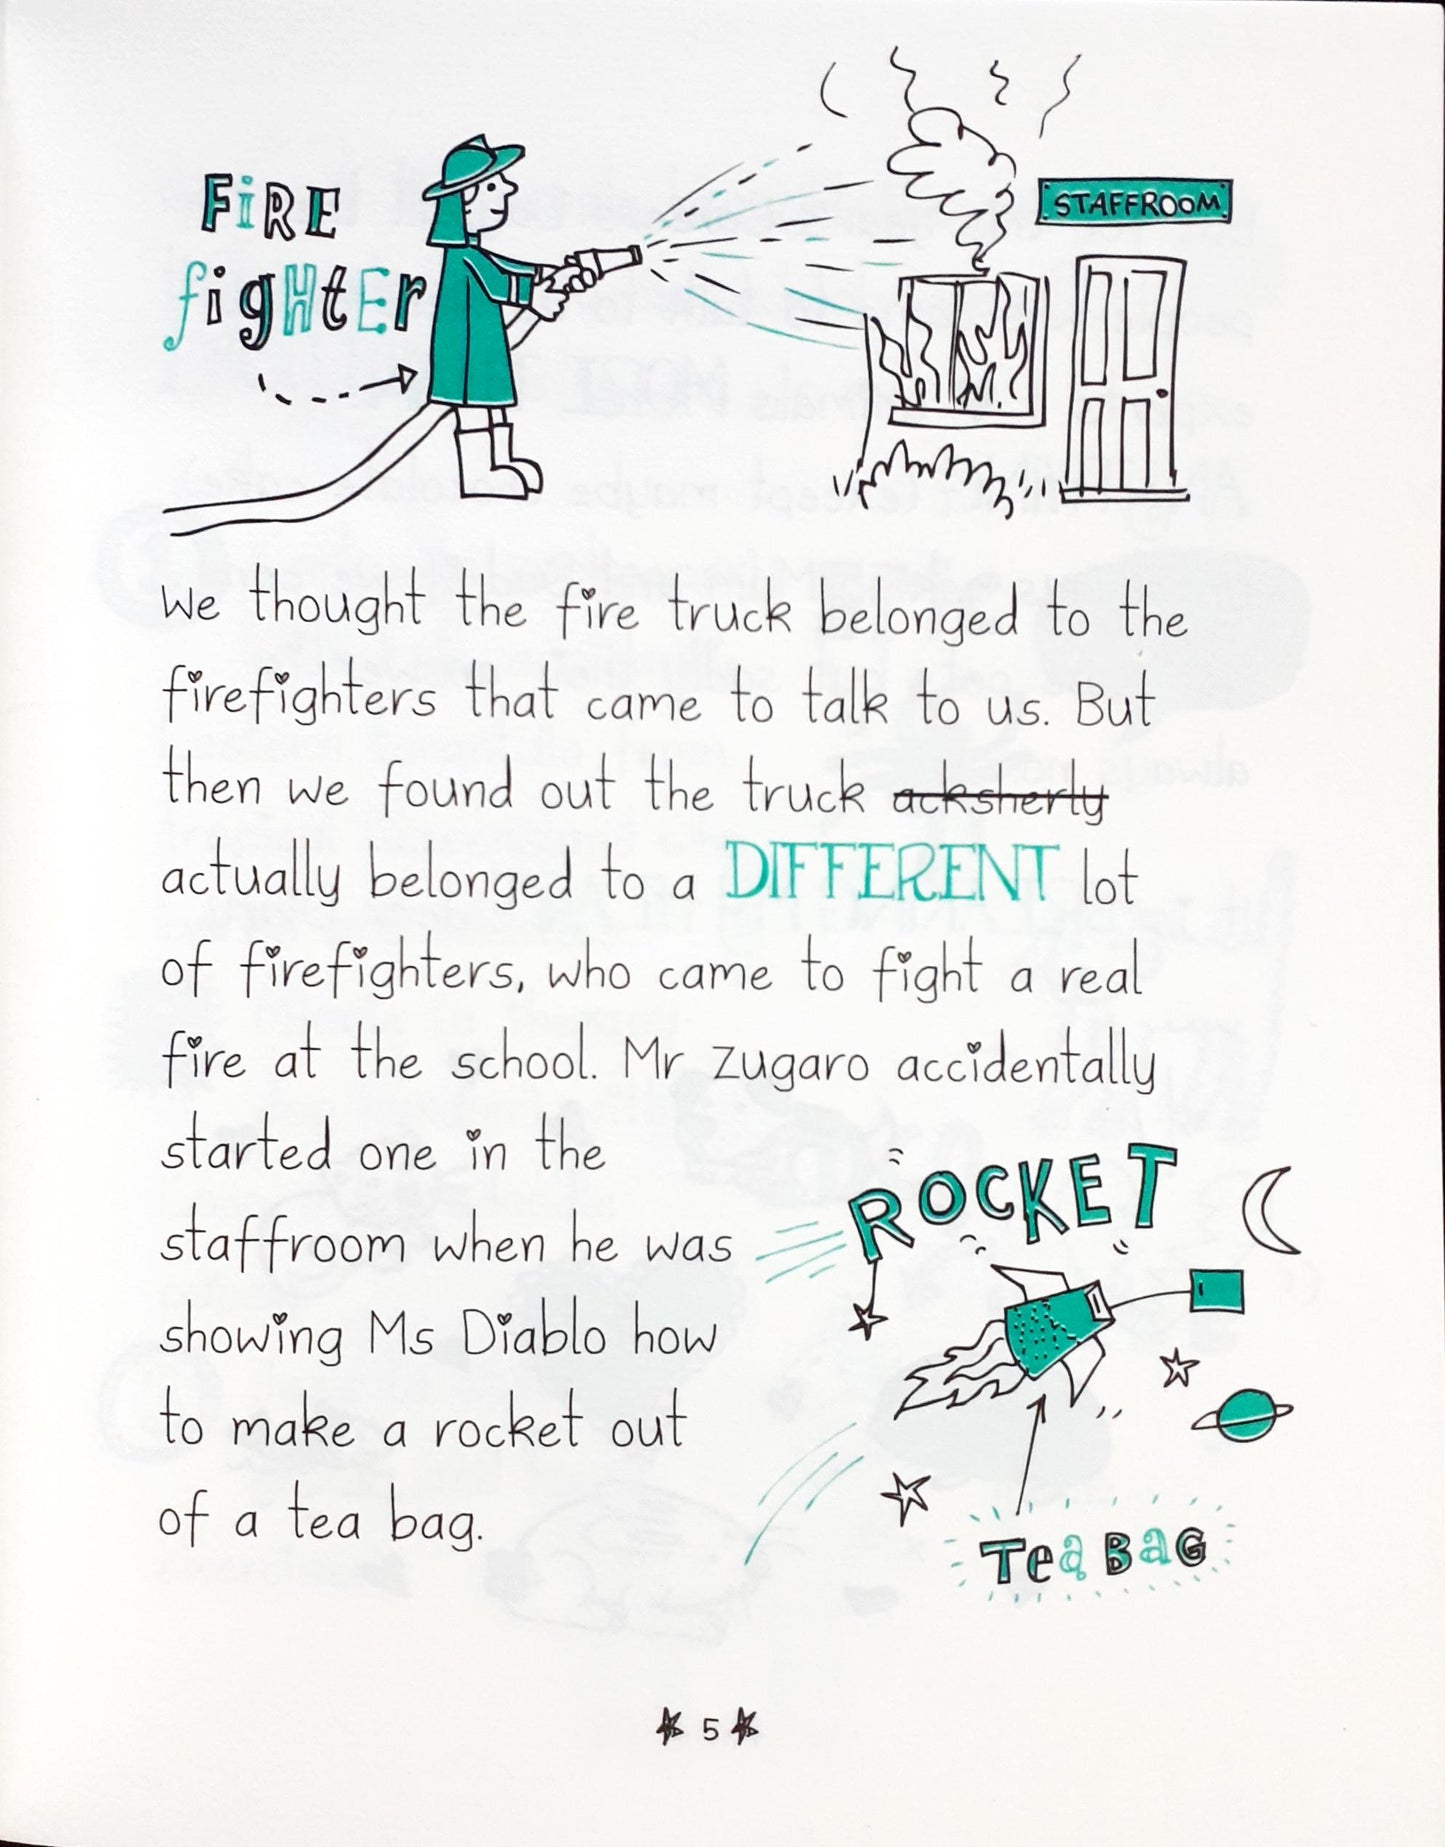 FiRE
fighter
STAFFROOM
We thought the fire truck belonged to the
firefighters that came to talk to us. But
then we found out the truck acksherly
actually belonged to a DIFFERENT lot
of firefighters, who came to fight a real
fire at the school. Mr Zugaro accidentally
started one in the
staffroom when he was
showing Ms Diablo how
to make a rocket out
of a tea bag.
ROCKET
Tea BaG
5